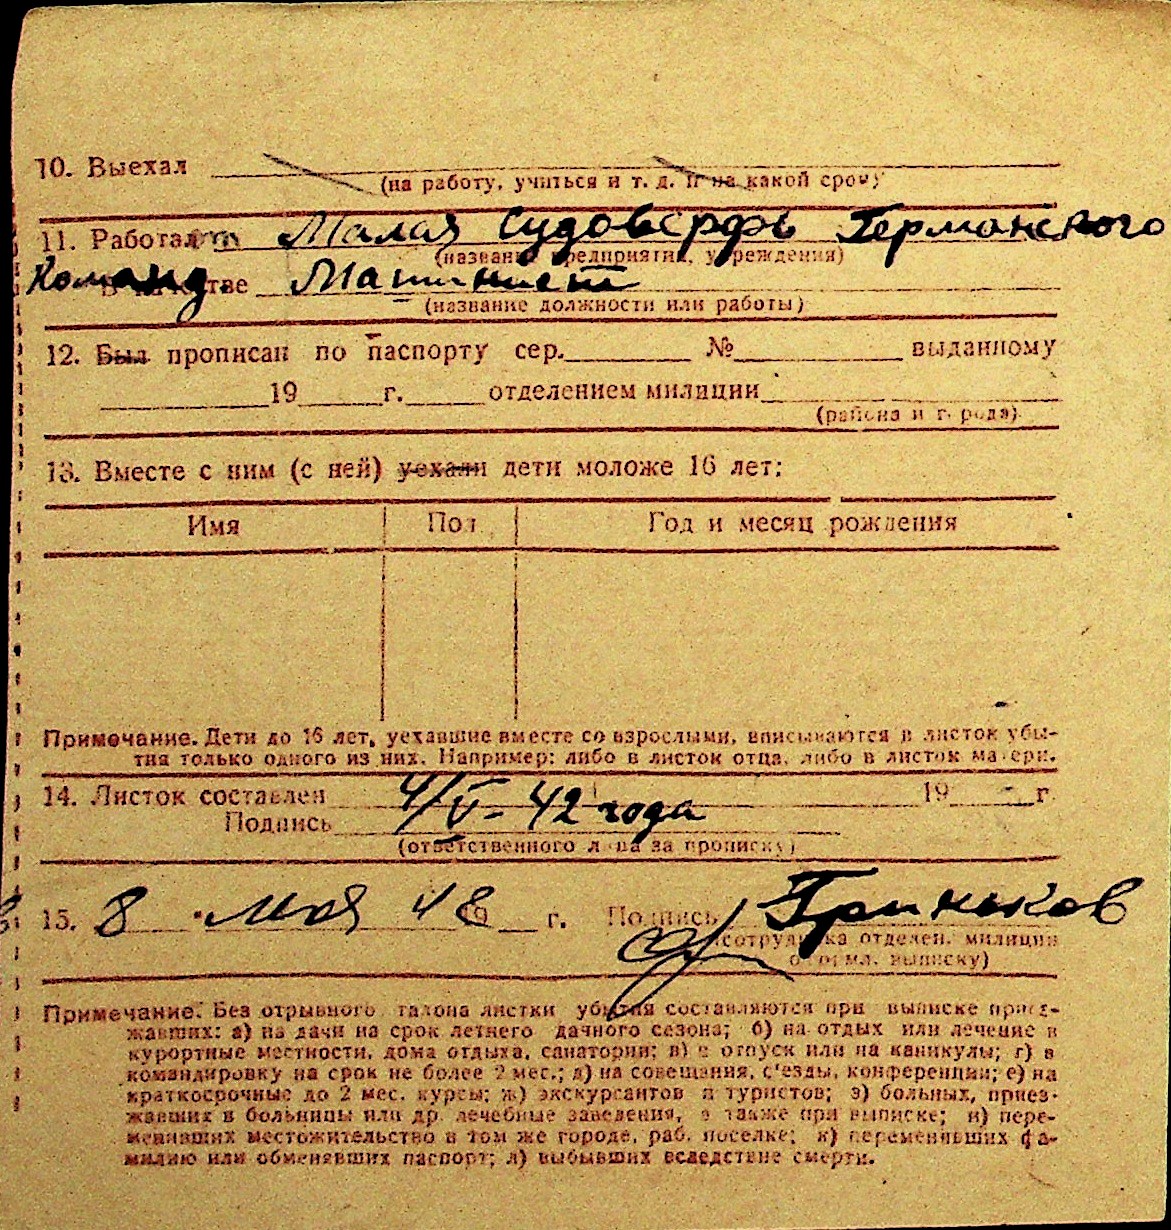 10. Выехал
(на работу, учиться и т. д. и на какой срок)
11. Работал Малая Судоверфь Германского
(название предприятия, учреждения)
Команд. в качестве Машинист
(название должности или работы)
12. Был прописан по паспорту сер. № выданному
19 г. отделением милиции
(района и города)
13. Вместе с ним (с ней) уехали дети моложе 16 лет:
Имя Пол Год и месяц рождения
Примечание. Дети до 16 лет, уехавшие вместе со взрослыми, вписываются в листок убы-
тия только одного из них. Например: либо в листок отца, либо в листок матери.
14. Листок составлен 4/V - 42 года 19 г.
Подпись
(ответственного лица за прописку)
15. 8 " мая 42 19 г. Подпись Гриньков
(сотрудника отделен. милиции
оформл. выписку)
Примечание. Без отрывного талона листки убытия составляются при выписке приез-
жавших: а) на дачи на срок летнего дачного сезона; б) на отдых или лечение в
курортные местности, дома отдыха, санатории; в) в отпуск или на каникулы; г) в
командировку на срок не более 2 мес.; д) на совещания, с'езды, конференции; е) на
краткосрочные до 2 мес. курсы; ж) экскурсантов и туристов; з) больных, приез-
жавших в больницы или др. лечебные заведения, а также при выписке; и) пере-
менивших местожительство в том же городе, раб. поселке; к) переменивших фа-
милию или обменявших паспорт; л) выбывших вследствие смерти.